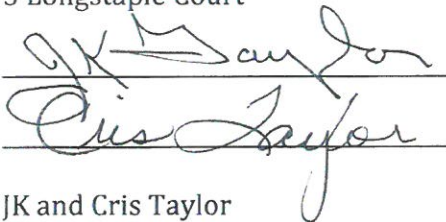 5 Longstaple Court
JK Taylor
Cris Taylor
JK and Cris Taylor